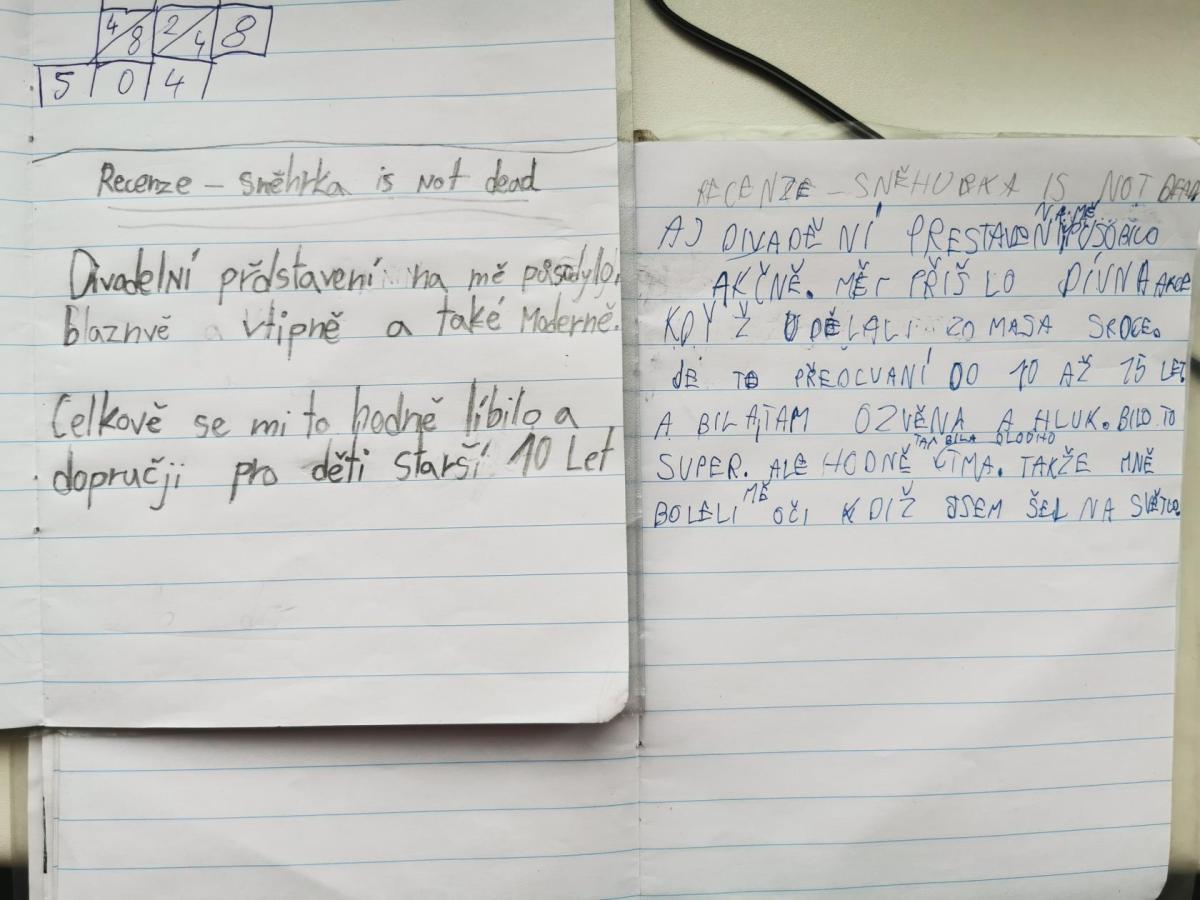 4/8 2/4 8
5 0 4
Recenze - Sněhrka is Not dead
Divadelní přdstavení na mě
blaznvě a vtipně a také Moderně.
Celkově se mi to hodně líbilo a
dopručji pro děti starší 10 Let
RECENZE - SNĚHURKA IS NOT DEAD
NA MĚ
AJ DIVADĚNÍ PŘESTAVENÍ PŮSOBILO
AKČNĚ. PŘIŠLO DÍVNA AKOR
KDYŽ UDĚLALI ZO MASA SRDCE.
JE TO DO 10 AŽ 15 LET.
A BILA TAM OZVĚNA A HLUK. BILO TO
TAM BILA DLOUHO
SUPER. ALE HODNĚ TMA. TAKŽE MNĚ
MĚ
BOLELI OČI KDIŽ JSEM ŠEL NA SVĚTLO.